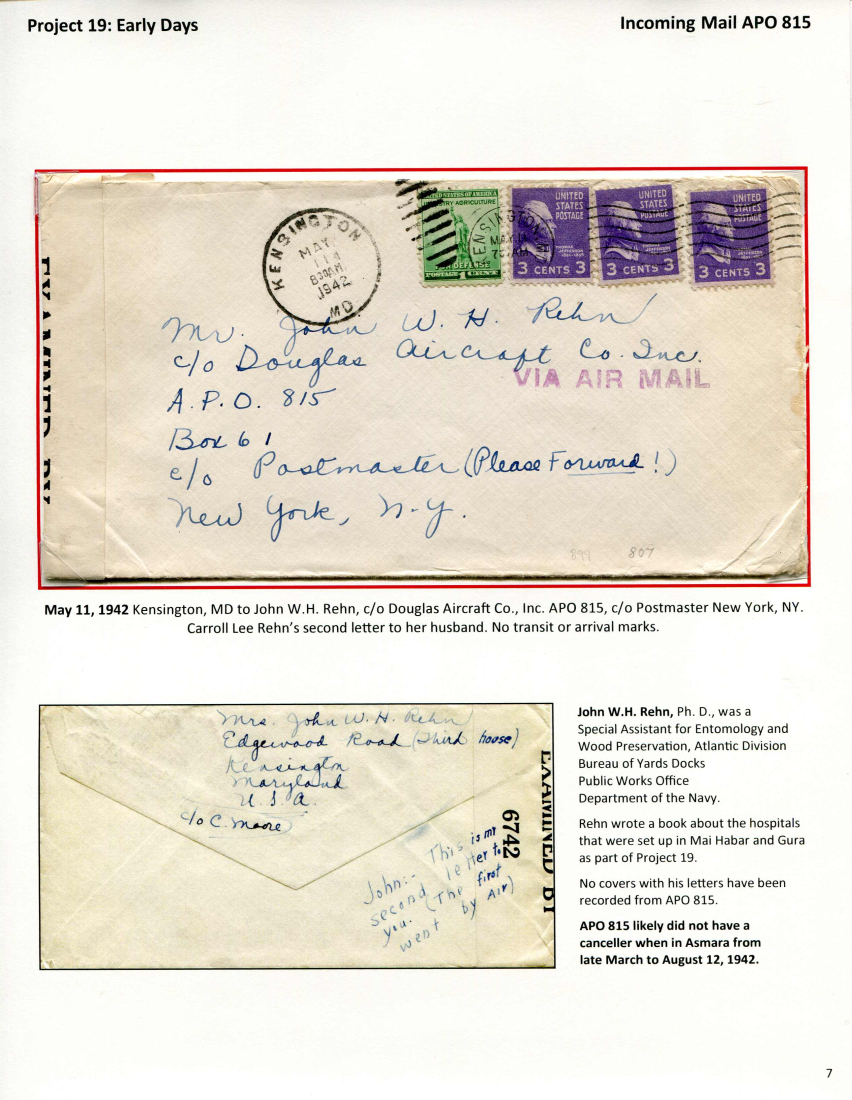 Project 19: Early Days
Incoming Mail APO 815
KENSINGTON
MAY
11
830AM
1942
MD
UNITED STATES OF AMERICA
INDUSTRY AGRICULTURE
FOR DEFENSE
POSTAGE 1 CENT
KENSINGTON
MAY
UNITED
STATES
POSTAGE
THOMAS
JEFFERSON
3 CENTS 3
UNITED
STATES
POSTAGE
3 CENTS 3
UNITED
STATES
POSTAGE
3 CENTS 3
EXAMINED BY
Mr. John W. H. Rehn
c/o Douglas Aircraft Co. Inc.
VIA AIR MAIL
A.P.O. 815
Box 61
c/o Postmaster (Please Forward!)
New York, N.Y.
807
May 11, 1942 Kensington, MD to John W.H. Rehn, c/o Douglas Aircraft Co., Inc. APO 815, c/o Postmaster New York, NY.
Carroll Lee Rehn's second letter to her husband. No transit or arrival marks.
Mrs. John W. H. Rehn
Edgewood Road (Third house)
Kensington
Maryland
U.S.A.
c/o C. Moore
John:- This is my
second letter to
you. (The first
went by Air)
6742
EXAMINED BY
John W.H. Rehn, Ph. D., was a
Special Assistant for Entomology and
Wood Preservation, Atlantic Division
Bureau of Yards Docks
Public Works Office
Department of the Navy.
Rehn wrote a book about the hospitals
that were set up in Mai Habar and Gura
as part of Project 19.
No covers with his letters have been
recorded from APO 815.
APO 815 likely did not have a
canceller when in Asmara from
late March to August 12, 1942.
7